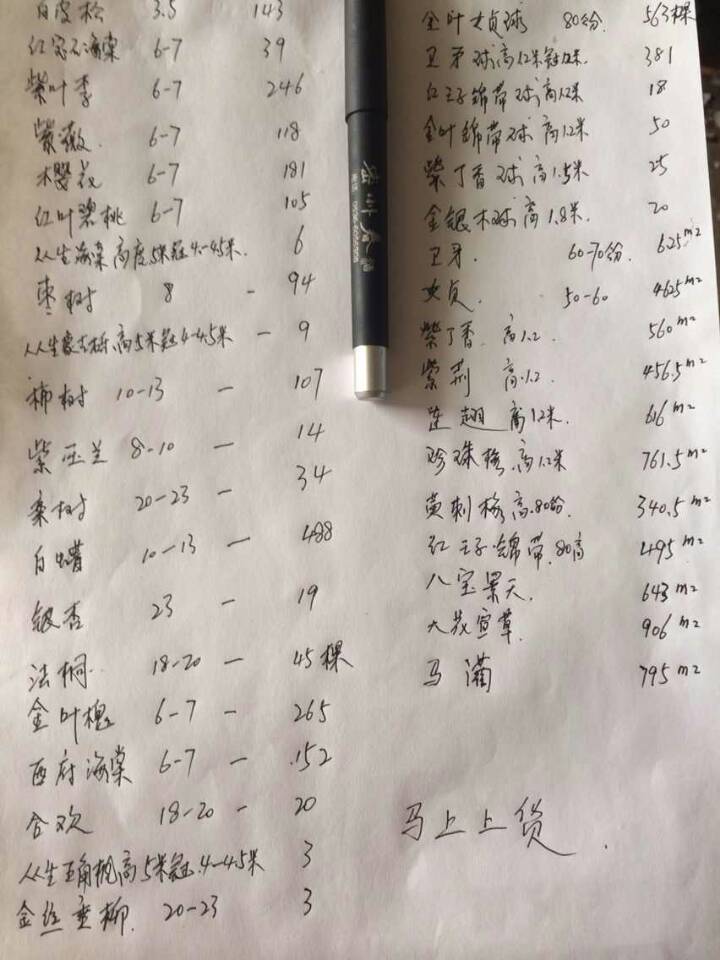 白皮松 3.5 143
红宝石海棠 6-7 39
紫叶李 6-7 246
紫薇. 6-7 118
樱花 6-7 181
红叶碧桃 6-7 105
从生海棠高度5米冠4-4.5米. 6
枣树 8 - 94
从生蒙古栎.高5米冠4-4.5米 - 9
柿树 10-13 - 107
紫玉兰 8-10 - 14
栾树 20-23 - 34
白蜡 10-13 - 488
银杏 23 - 19
法桐 18-20 - 45棵
金叶槐 6-7 - 265
西府海棠 6-7 - 152
合欢 18-20 - 20
从生五角枫高5米冠.4-4.5米 3
金丝垂柳. 20-23 3
金叶女贞球 80分. 563棵
卫矛球高1.2米冠1.2米. 381
红王子锦带球高1.2米 18
金叶锦带球 高1.2米 50
紫丁香球高1.5米 25
金银木球高1.8米. 20
卫矛. 60-70分. 625m²
女贞. 50-60 4625m²
紫丁香. 高1.2 560m²
紫荆 高.1.2 456.5m²
连翘 高1.2米. 616m²
珍珠梅.高1.2米 761.5m²
黄刺梅高.80分. 340.5m²
红王子锦带.80高 495m²
八宝景天. 643m²
大花萱草. 906m²
马蔺 795m²
马上上货.